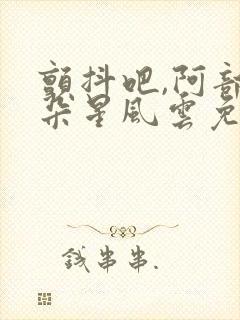 顫抖吧,阿部
朵星風雲免
錢串串.